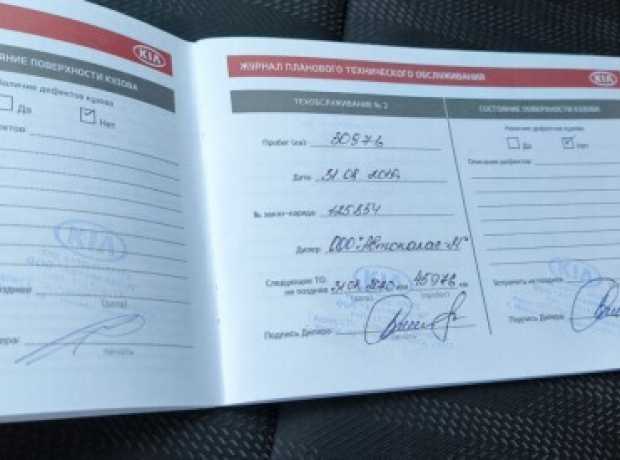 ЯНИЕ ПОВЕРХНОСТИ КУЗОВА
KIA
Наличие дефектов кузова
Да
Нет
KIA
(дата)
печать
ЖУРНАЛ ПЛАНОВОГО ТЕХНИЧЕСКОГО ОБСЛУЖИВАНИЯ
KIA
ТЕХОБСЛУЖИВАНИЕ № 2
Пробег (км): 30976
Дата: 31.08.2019
№ заказ-наряда: 125854
Дилер: ООО "Автопалас-М"
Следующее ТО
не позднее 31.08.2020 или 45976 км
(дата) (пробег)
KIA
Подпись Дилера:
печать
СОСТОЯНИЕ ПОВЕРХНОСТИ КУЗОВА
Наличие дефектов кузова
Да Нет
Описание дефектов:
Устранить не позднее
KIA
Подпись Дилера: